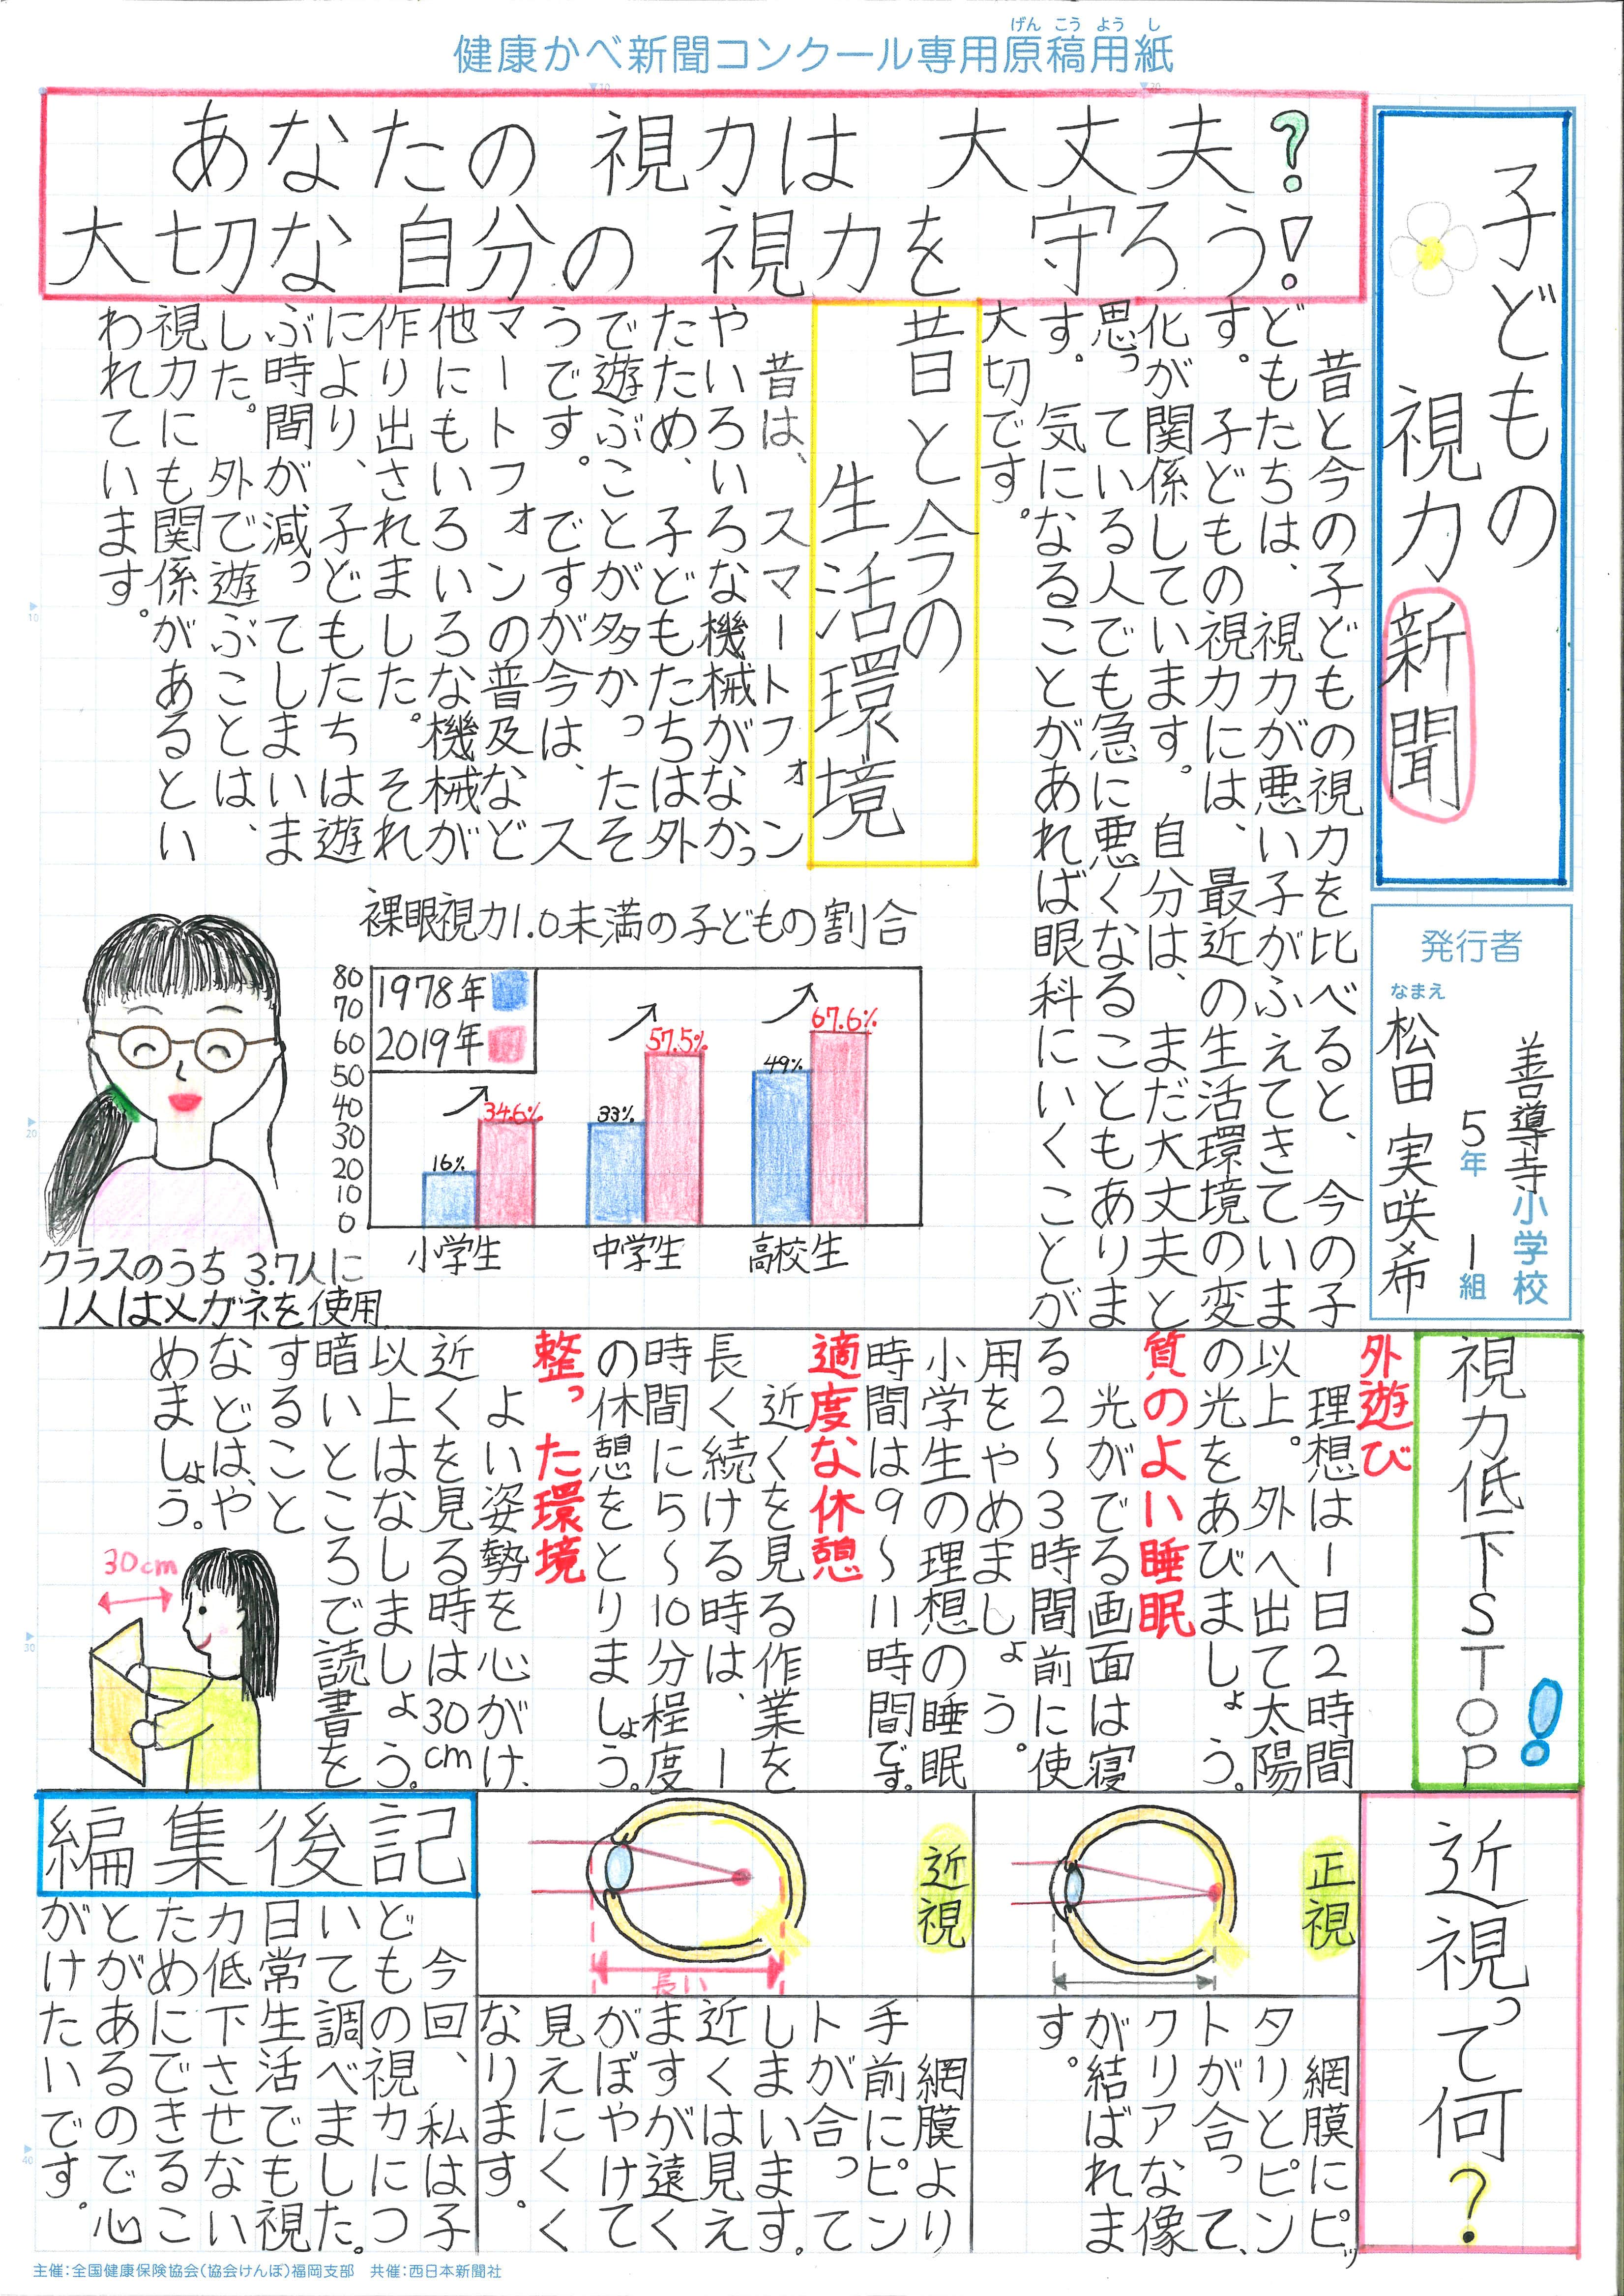 健康かべ新聞コンクール専用原稿用紙
げんこうようし
子どもの
視力新聞
発行者
善導寺小学校
5年 1組
なまえ
松田 実咲希
あなたの視力は大丈夫?
大切な自分の視力を守ろう!
昔と今の子どもの視力を比べると、今の子
どもたちは、視力が悪い子がふえてきていま
す。子どもの視力には、最近の生活環境の変
化が関係しています。自分は、まだ大丈夫と
思っている人でも急に悪くなることもありま
す。気になることがあれば眼科にいくことが
大切です。
昔と今の
生活環境
昔は、スマートフォン
やいろいろな機械がなかっ
たため、子どもたちは外
で遊ぶことが多かったそ
うです。ですが今は、ス
マートフォンの普及など
他にもいろいろな機械が
作り出されました。それ
により、子どもたちは遊
ぶ時間が減ってしまいま
した。外で遊ぶことは、
視力にも関係があるとい
われています。
裸眼視力1.0未満の子どもの割合
80
70
60
50
40
30
20
10
0
1978年
2019年
16%
34.6%
33%
57.5%
49%
67.6%
小学生
中学生
高校生
クラスのうち3.7人に
1人はメガネを使用
視力低下STOP!
外遊び
理想は1日2時間
以上。外へ出て太陽
の光をあびましょう。
質のよい睡眠
光がでる画面は寝
る2~3時間前に使
用をやめましょう。
小学生の理想の睡眠
時間は9~11時間です。
適度な休憩
近くを見る作業を
長く続ける時は、1
時間に5~10分程度
の休憩をとりましょう。
整った環境
よい姿勢を心がけ、
近くを見る時は30cm
以上はなしましょう。
暗いところで読書を
すること
などは、や
めましょう。
30cm
近視って何?
正視
網膜にピッ
タリとピン
トが合って、
クリアな像
が結ばれま
す。
近視
長い
網膜より
手前にピン
トが合って
しまいます。
近くは見え
ますが遠く
がぼやけて
見えにくく
なります。
編集後記
今回、私は子
どもの視力につ
いて調べました。
日常生活でも視
力低下させない
ためにできるこ
とがあるので心
がけたいです。
主催:全国健康保険協会(協会けんぽ)福岡支部 共催:西日本新聞社